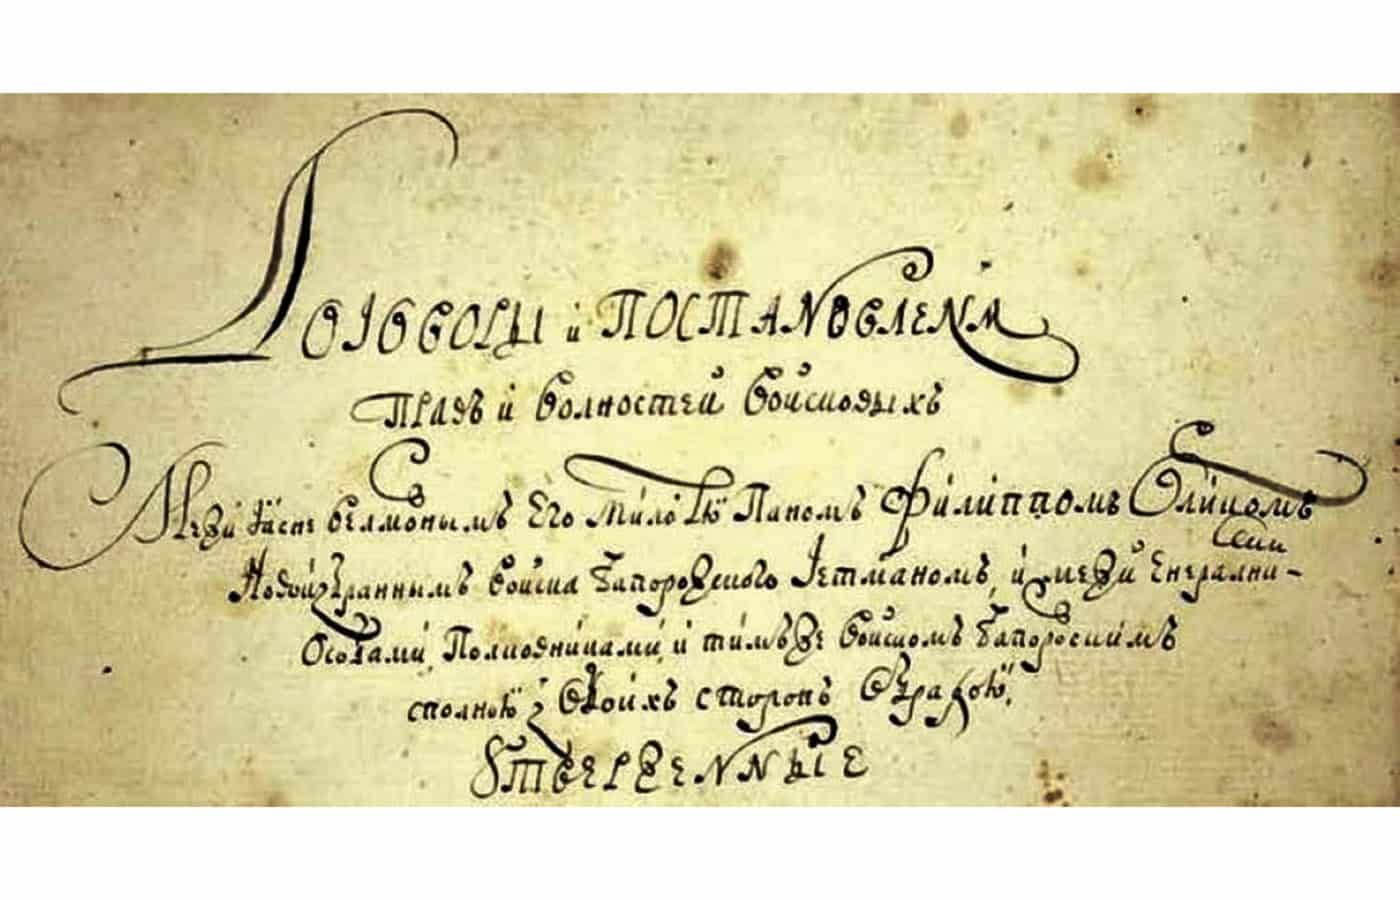 Договоры и Постановлениѧ
Правъ и волностей войсковыхъ
Межи Ясне велможнымъ Его Милостю Паномъ Филиппомъ Орликомъ
Новоизбраннымъ войска Запорозкого Гетманомъ, и межи Енералними
Особами, Полковниками, и тимъже войскомъ Запорозскимъ
сполною з обоихъ сторонъ обрадою,
Утверженные